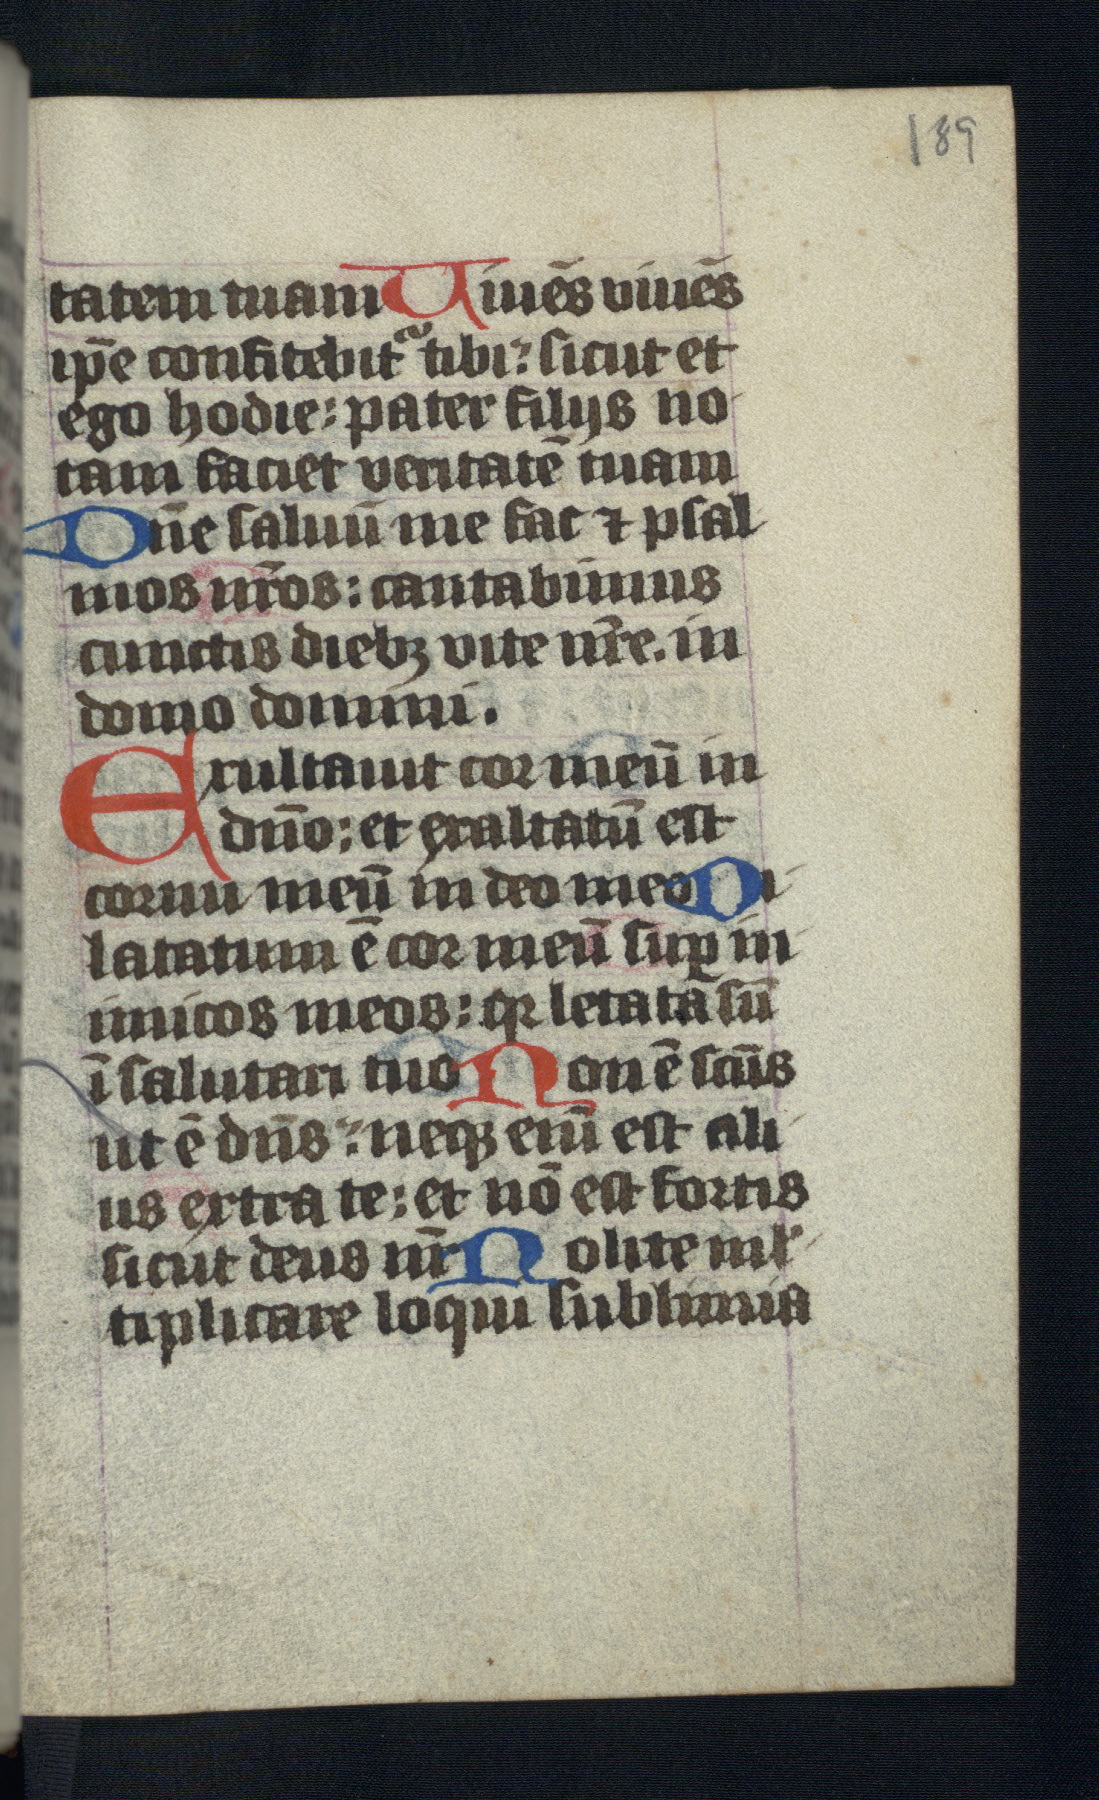 189
tatem tuam Uiuēs viuēs
ip̄e confitebit᷑ tibi: sicut et
ego hodie: pater filijs no
tam faciet veritatē tuam
Dn̄e saluū me fac ⁊ psal
mos nr̄os: cantabimus
cunctis diebꝫ vite nr̄e. in
domo domini.
Exultauit cor meū in
dn̄o: et exaltatū est
cornu meū in deo meo Di
latatum ē cor meū suꝑ in
imicos meos: qꝛ letata sū
ī salutari tuo Non ē scūs
ut ē dn̄s: neqꝫ enī est ali
us extra te: et nō est fortis
sicut deus nr̄ Nolite ml̓
tiplicare loqui sublimia